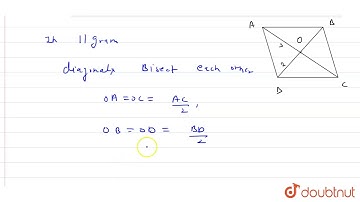 In ||gram
diagonals Bisect each other
OA = OC = AC/2,
OB = OD = BD/2
A
B
O
D
C
doubtnut